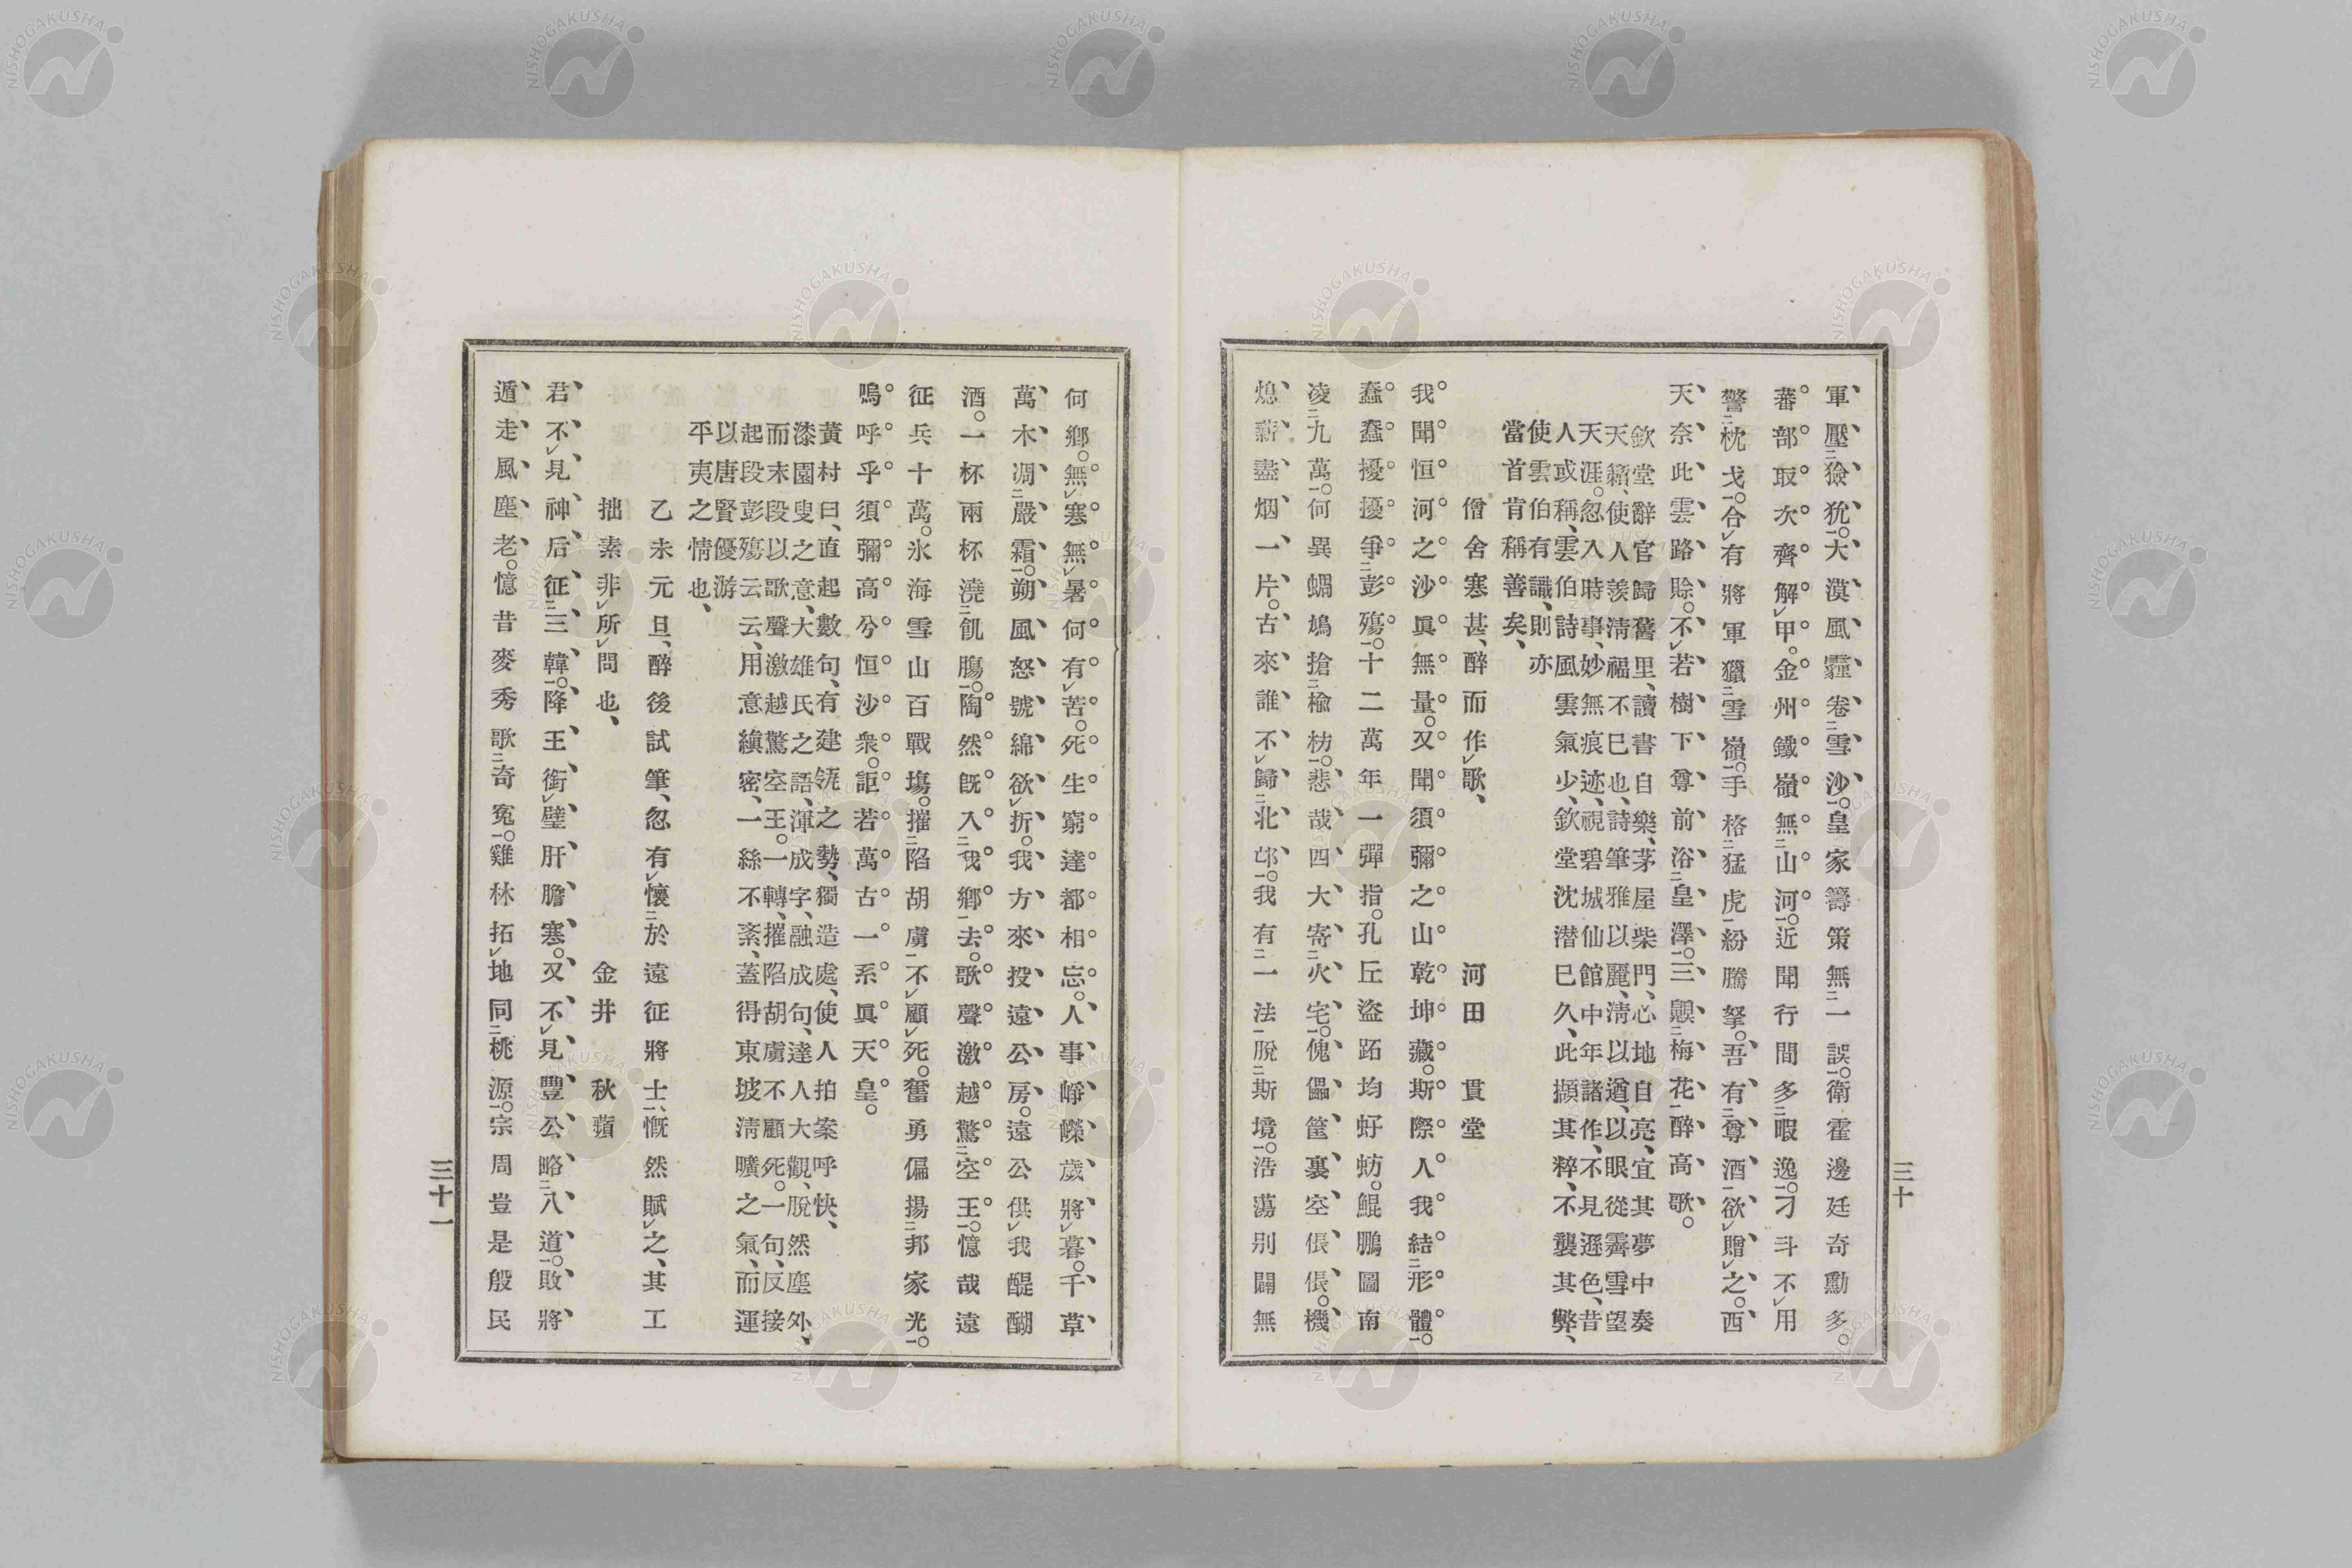 軍壓獫狁。大漠風霾卷雪沙。皇家籌策無一誤。衛霍邊廷奇勳多。
蕃部取次齊解甲。金州鐵嶺無山河。近聞行間多暇逸。刁斗不用
警枕戈。合有將軍獵雪嶺。手格猛虎紛騰拏。吾有尊酒欲贈之。西
天奈此雲路賒。不若樹下尊前浴皇澤。三嗅梅花醉高歌。
欽堂辭官歸舊里、讀書自樂、茅屋柴門、心地自亮、宜其夢中奏
天籟、使人羨清福不已也、詩筆雅以麗、清以遒、以眼從霽雪望
天涯。忽入時事、妙無痕迹、視碧城仙館中年諸作、不見遜色、昔
人或稱、雲伯詩風雲氣少、欽堂沈潜已久、此擷其粹、不襲其弊、
使雲伯有識、則亦
當首肯稱善矣、
僧舍寒甚、醉而作歌、 河田 貫堂
我聞恒河之沙眞無量。又聞須彌之山乾坤藏。斯際人我結形體。
蠢蠢擾擾爭彭殤。十二萬年一彈指。孔丘盜跖均虸蚄。鯤鵬圖南
凌九萬。何異蜩鳩搶楡枋。悲哉四大寄火宅。傀儡筐裏空倀倀。機
熄薪盡烟一片。古來誰不歸北邙。我有一法脫斯境。浩蕩別闢無
三十
何鄉。無寒無暑何有苦。死生窮達都相忘。人事崢嶸歲將暮。千草
萬木凋嚴霜。朔風怒號綿欲折。我方來投遠公房。遠公供我醍醐
酒。一杯兩杯澆飢膓。陶然旣入我鄉去。歌聲激越驚空王。憶哉遠
征兵十萬。氷海雪山百戰塲。摧陷胡虜不顧死。奮勇偏揚邦家光。
嗚呼乎須彌高兮恒沙衆。詎若萬古一系眞天皇。
黃村曰、直起數句、有建瓴之勢、獨造處、使人拍案呼快、
漆園叟之意、大雄氏之語、渾成字、融成句、達人大觀、脫然塵外、
而末段以歌聲激越驚空王。一轉、摧陷胡虜不顧死。一句、反接
起段彭殤云云、用意縝密、一絲不紊、蓋得東坡淸曠之氣、而運
以唐賢優游
平夷之情也、
乙未元旦、醉後試筆、忽有懷於遠征將士、慨然賦之、其工
拙素非所問也、 金井 秋蘋
君不見神后征三韓。降王銜璧肝膽寒。又不見豐公略八道。敗將
遁走風塵老。憶昔麥秀歌奇寃。雞林拓地同桃源。宗周豈是殷民
三十一